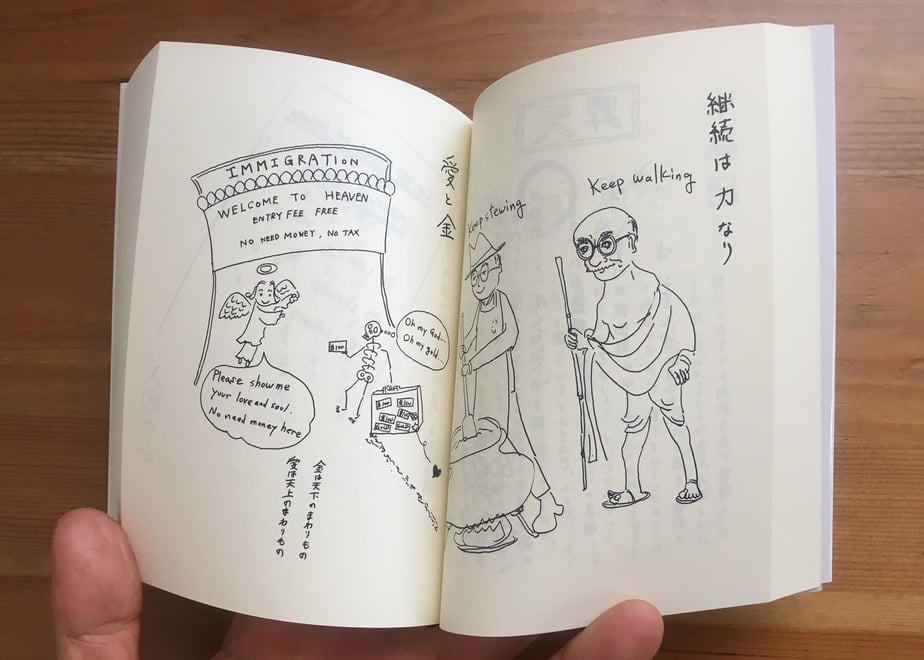 継続は力なり
Keep walking
Keep stewing
愛と金
IMMIGRATION
WELCOME TO HEAVEN
ENTRY FEE FREE
NO NEED MONEY, NO TAX
$100
Oh my God...
Oh my gold...
Please show me
your love and soul.
No need money here
$100
$100
$100
GOLD
GOLD
金は天下のまわりもの
愛は天上のまわりもの